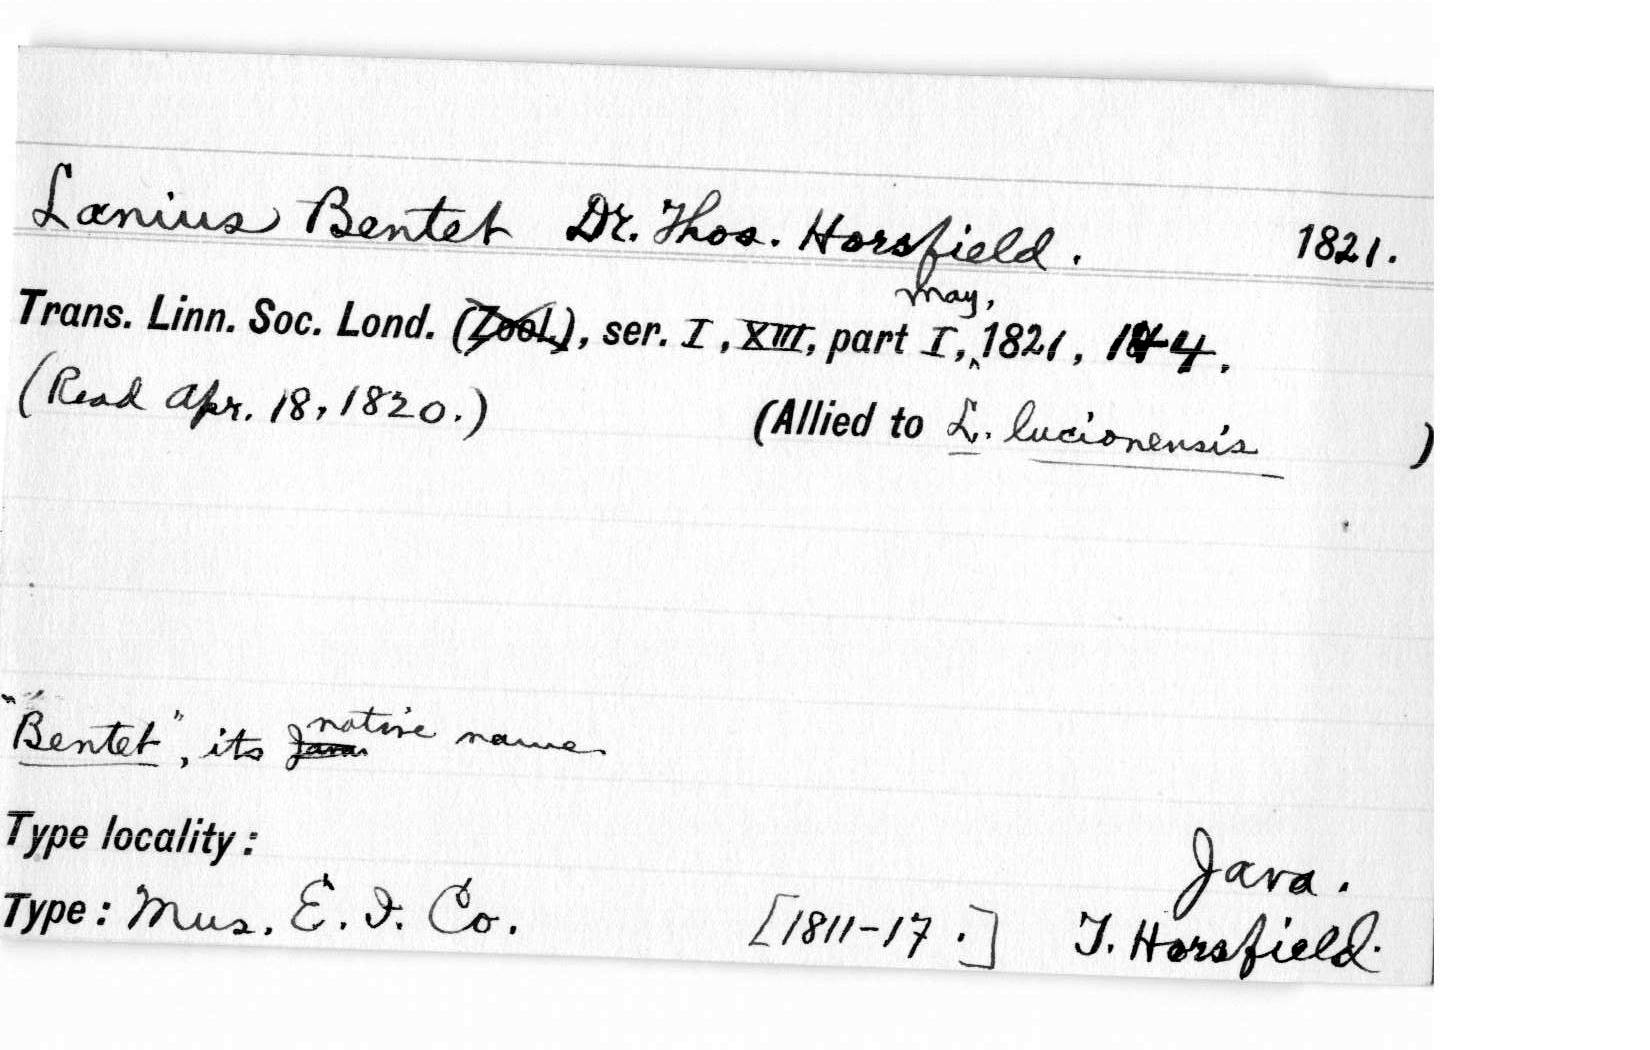 Lanius Bentet Dr. Thos. Horsfield. 1821.
May,
Trans. Linn. Soc. Lond. (Zool.), ser. I, XIII, part I, 1821, 144.
(Read Apr. 18, 1820.) (Allied to L. lucionensis )
"Bentet", its Java native name
Type locality: Java.
Type: Mus. E. I. Co. [1811-17.] T. Horsfield.